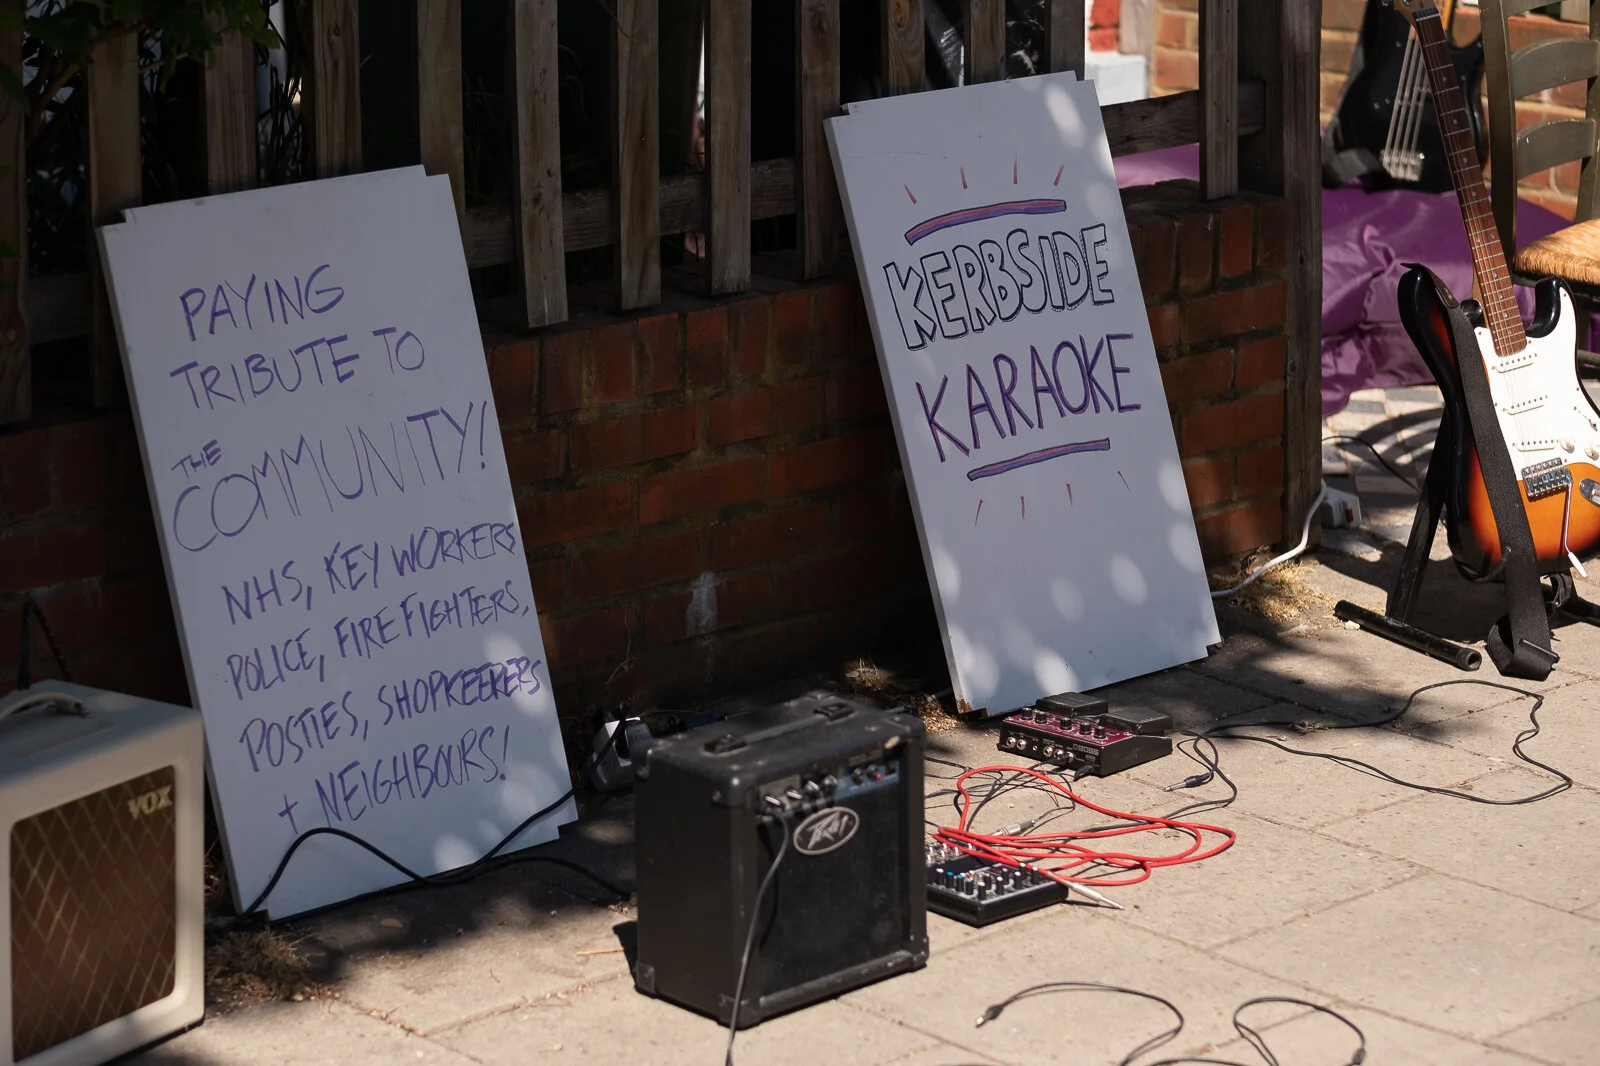 PAYING
TRIBUTE TO
THE
COMMUNITY!
NHS, KEY WORKERS
POLICE, FIREFIGHTERS,
POSTIES, SHOPKEEPERS
+ NEIGHBOURS!
KERBSIDE
KARAOKE
VOX
PEAVEY
BOSS